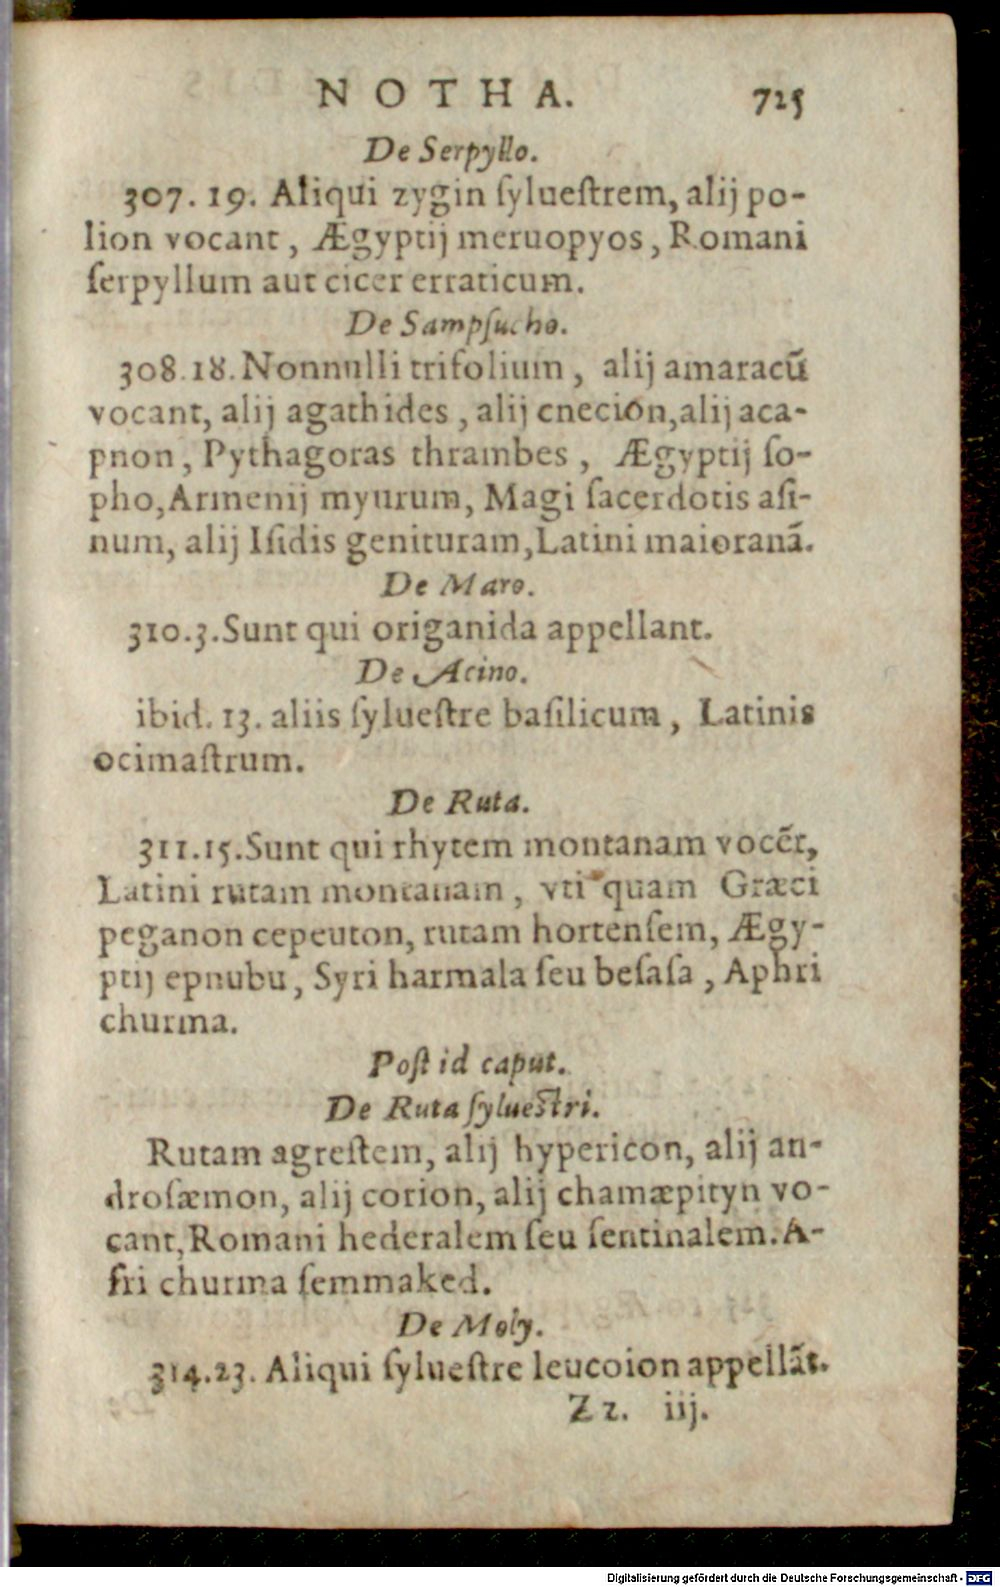 NOTHA. 725
De Serpyllo.
307. 19. Aliqui zygin ſylueſtrem, alij po-
lion vocant, Ægyptij meruopyos, Romani
ſerpyllum aut cicer erraticum.
De Sampſucho.
308.18. Nonnulli trifolium, alij amaracū
vocant, alij agathides, alij cnecion, alij aca-
pnon, Pythagoras thrambes, Ægyptij ſo-
pho, Armenij myurum, Magi ſacerdotis aſi-
num, alij Iſidis genituram, Latini maioranā.
De Maro.
310.3. Sunt qui origanida appellant.
De Acino.
ibid. 13. aliis ſylueſtre baſilicum, Latinis
ocimaſtrum.
De Ruta.
311.15. Sunt qui rhytem montanam vocēt,
Latini rutam montanam, vti quam Græci
peganon cepeuton, rutam hortenſem, Ægy-
ptij epnubu, Syri harmala ſeu beſaſa, Aphri
churma.
Poſt id caput.
De Ruta ſylueſtri.
Rutam agreſtem, alij hypericon, alij an-
droſæmon, alij corion, alij chamæpityn vo-
cant, Romani hederalem ſeu ſentinalem. A-
fri churma ſemmaked.
De Moly.
314.23. Aliqui ſylueſtre leucoion appellāt.
Zz. iij.
Digitalisierung gefördert durch die Deutsche Forschungsgemeinschaft - DFG